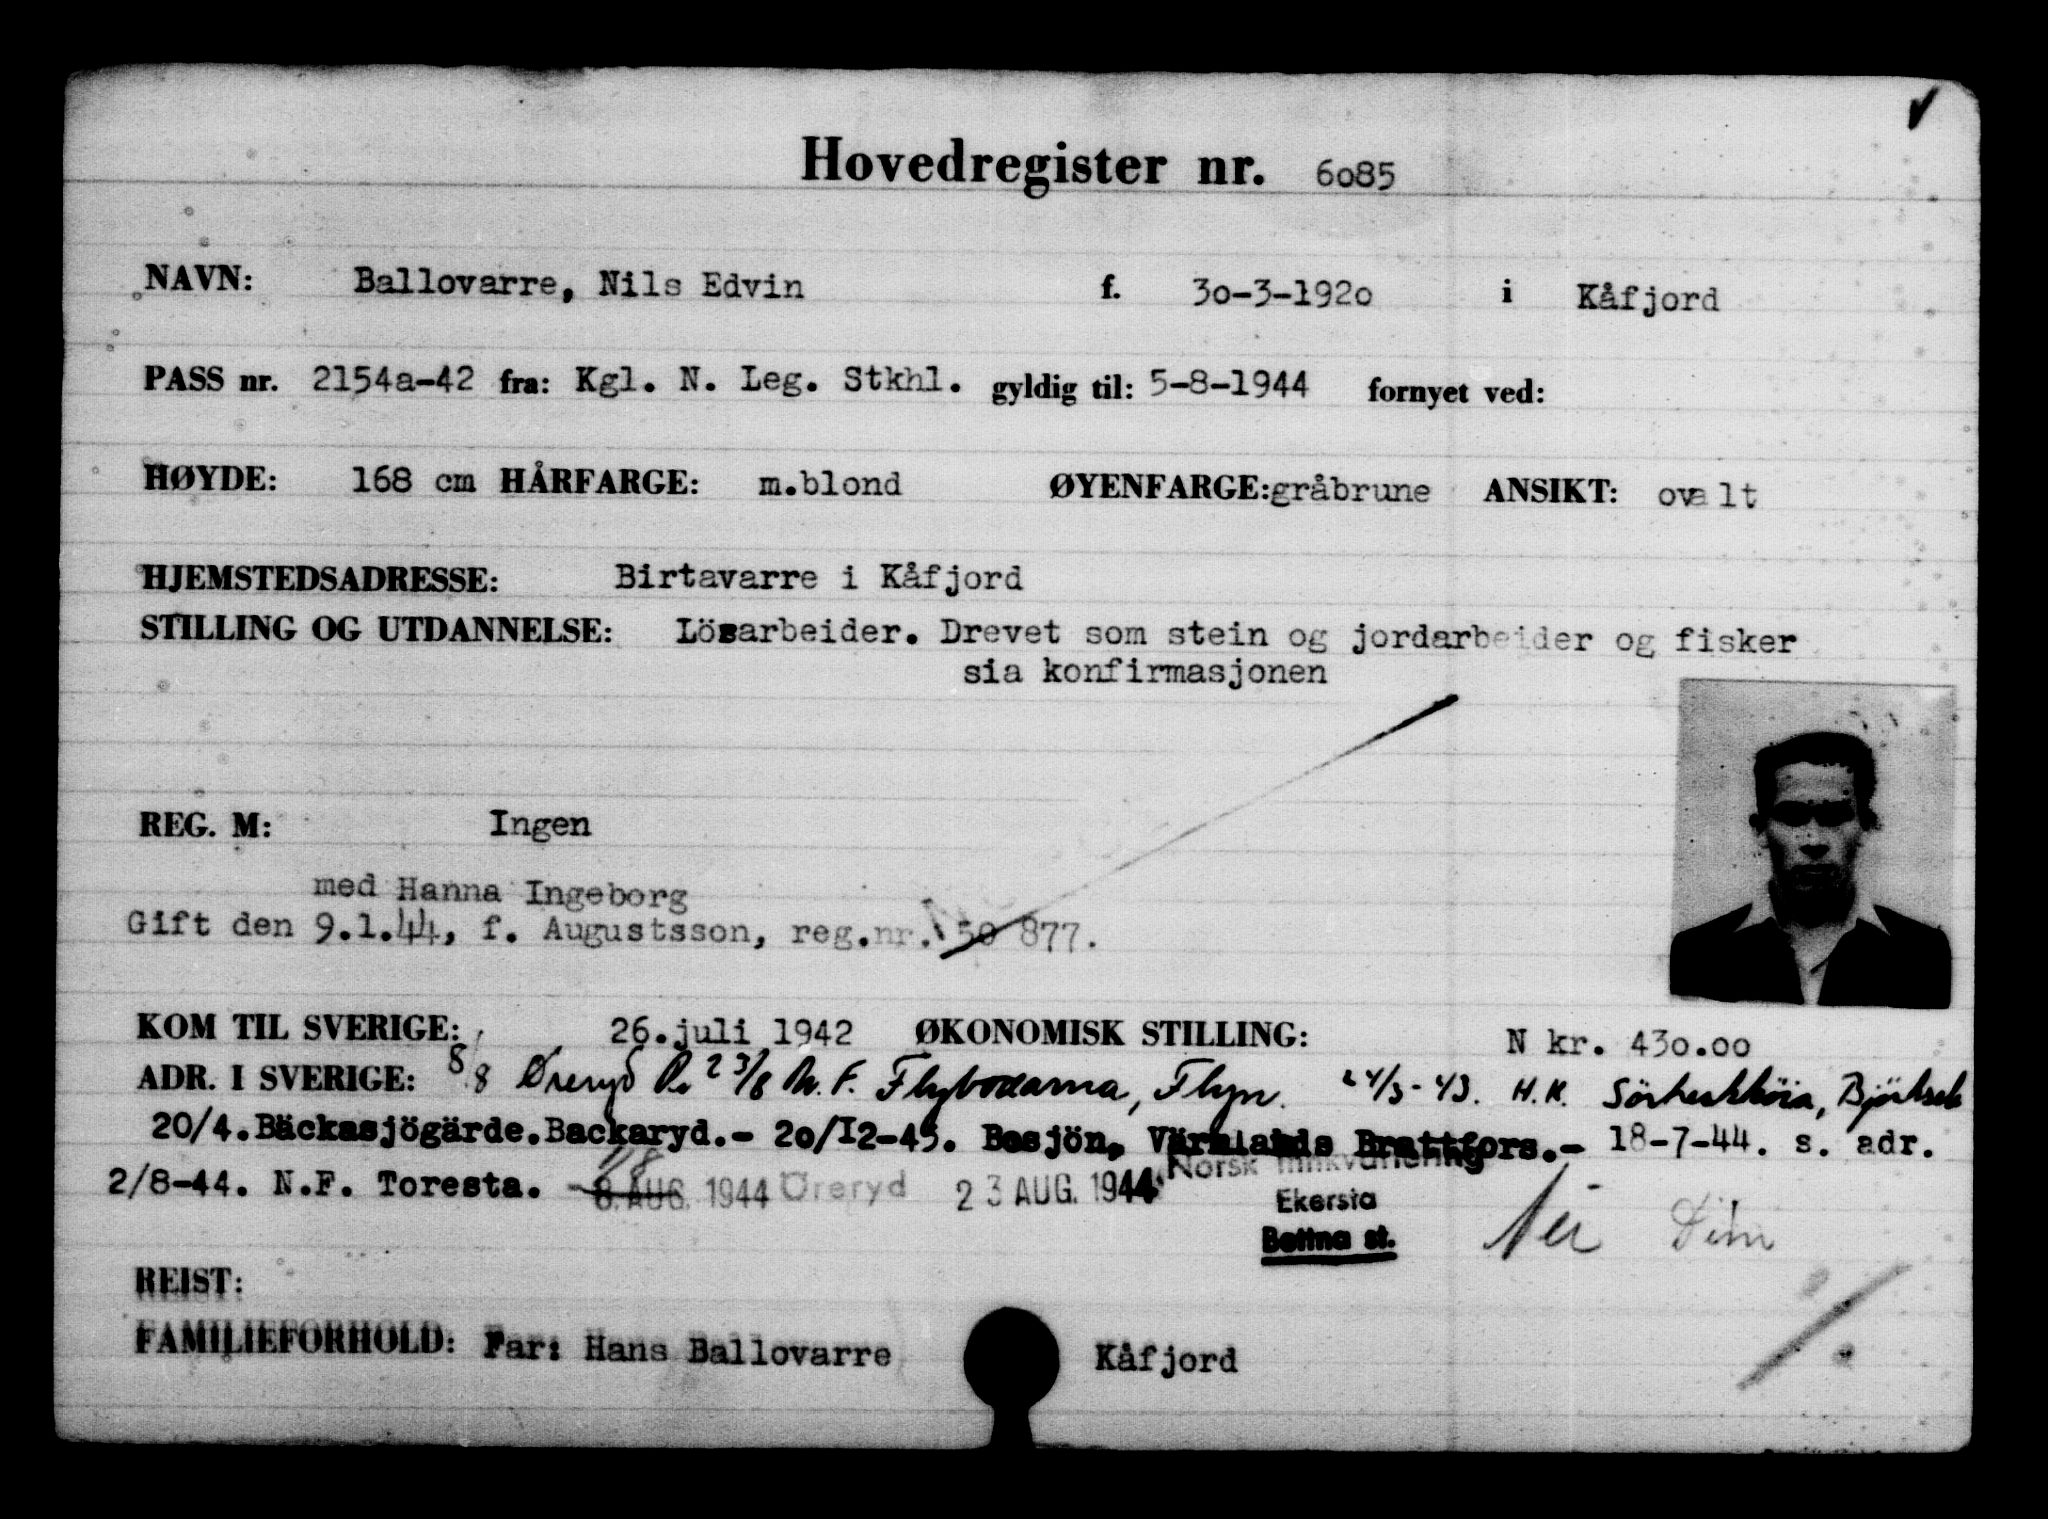 Hovedregister nr. 6085
NAVN: Ballovarre, Nils Edvin f. 30-3-1920 i Kåfjord
PASS nr. 2154a-42 fra: Kgl. N. Leg. Stkhl. gyldig til: 5-8-1944 fornyet ved:
HØYDE: 168 cm HÅRFARGE: m.blond ØYENFARGE: gråbrune ANSIKT: ovalt
HJEMSTEDSADRESSE: Birtavarre i Kåfjord
STILLING OG UTDANNELSE: Lösarbeider. Drevet som stein og jordarbeider og fisker
sia konfirmasjonen
REG. M: Ingen
med Hanna Ingeborg
Gift den 9.1.44, f. Augustsson, reg.nr. 50 877.
KOM TIL SVERIGE: 26.juli 1942 ØKONOMISK STILLING: N kr. 430.00
ADR. I SVERIGE: 8/8 Øreryd 23/8 N. F. Flybodarna, Flyn. 24/3-43. H.K.
20/4. Bäckasjögärde. Backaryd.- 20/12-43. Bosjön, Värmlands Brattfors.- 18-7-44. s. adr.
2/8-44. N.F. Toresta. 8. AUG. 1944 Öreryd 23 AUG. 1944 Norsk Innkvartering
Ekersta
Bettna st.
REIST:
FAMILIEFORHOLD: Far: Hans Ballovarre Kåfjord